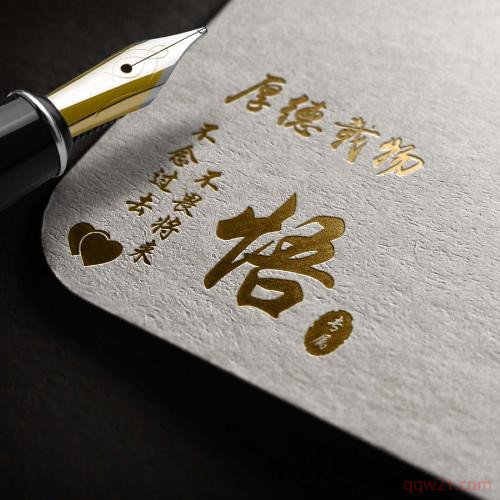 厚德载物
不畏将来
不念过去
悟
专属
qqw21.com